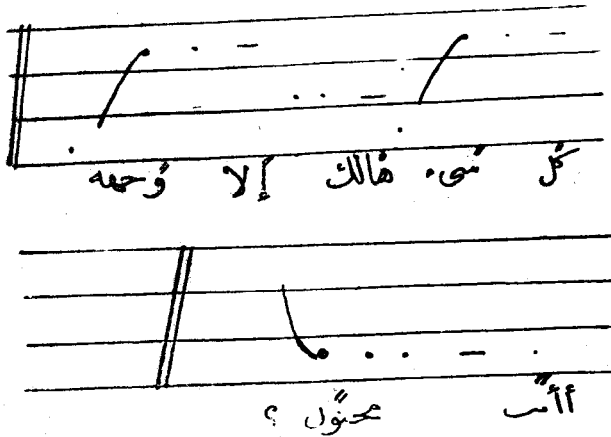 كل شيء هالك إلا وجهه
أأنت مجنون ؟